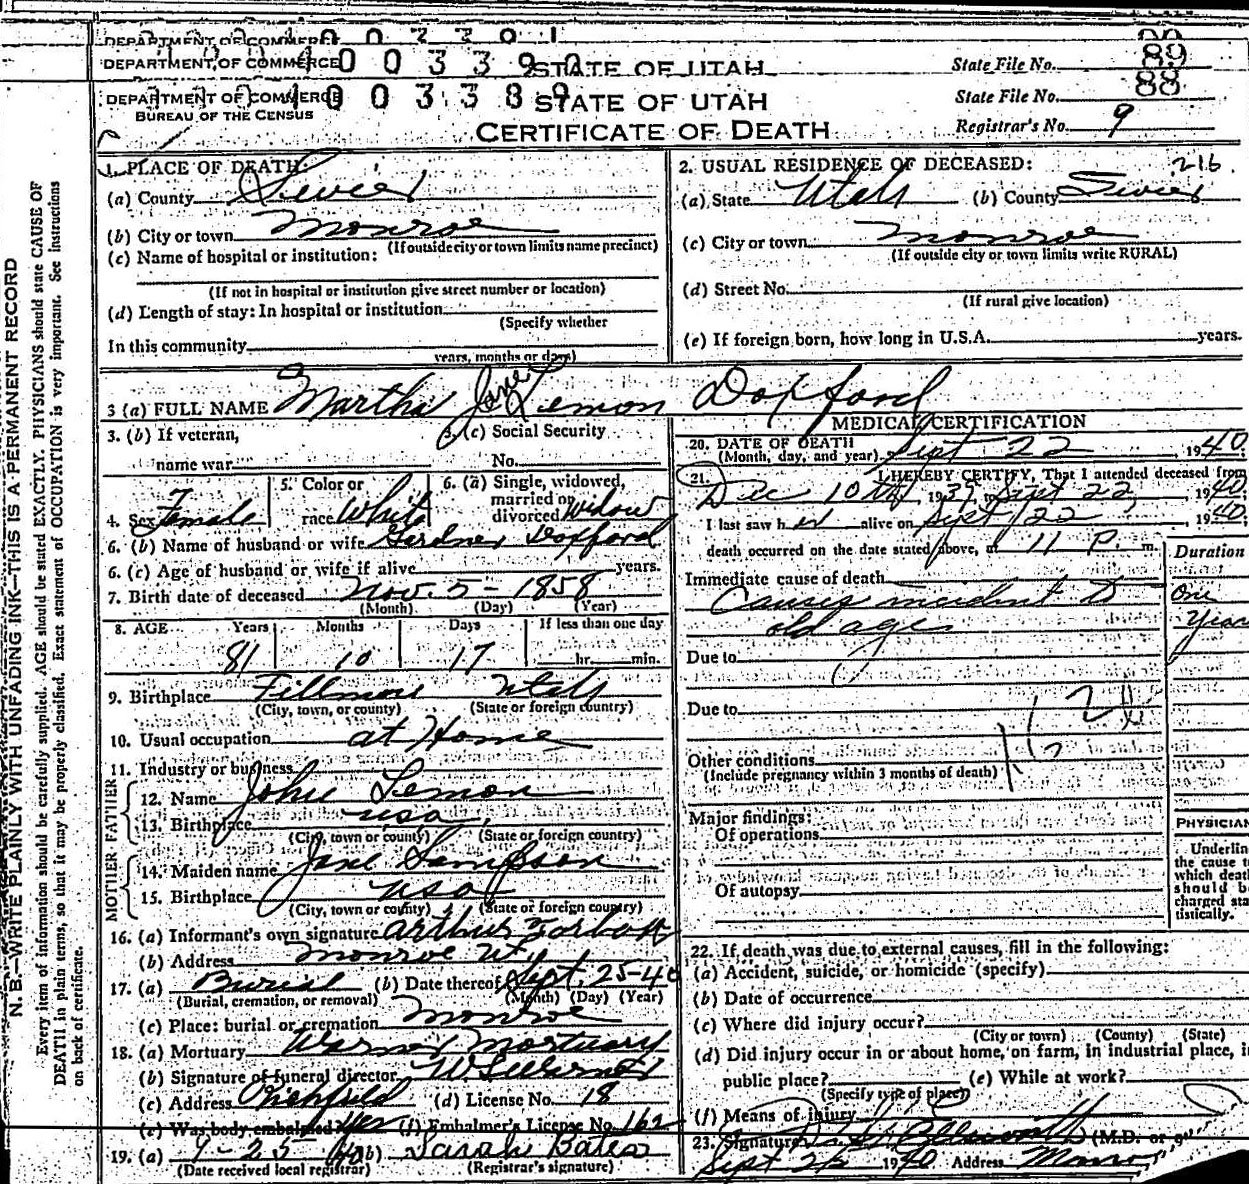 DEPARTMENT OF COMMERCE
DEPARTMENT OF COMMERCE STATE OF UTAH State File No. 89
DEPARTMENT OF COMMERCE STATE OF UTAH State File No. 88
BUREAU OF THE CENSUS
CERTIFICATE OF DEATH Registrar's No. 9
N. B.—WRITE PLAINLY WITH UNFADING INK—THIS IS A PERMANENT RECORD
Every item of information should be carefully supplied. AGE should be stated EXACTLY. PHYSICIANS should state CAUSE OF
DEATH in plain terms, so that it may be properly classified. Exact statement of OCCUPATION is very important. See instructions
on back of certificate.
1. PLACE OF DEATH:
(a) County Sevier
(b) City or town Monroe
(If outside city or town limits name precinct)
(c) Name of hospital or institution:
(If not in hospital or institution give street number or location)
(d) Length of stay: In hospital or institution
(Specify whether
In this community
years, months or days)
2. USUAL RESIDENCE OF DECEASED: 216
(a) State Utah (b) County Sevier
(c) City or town Monroe
(If outside city or town limits write RURAL)
(d) Street No.
(If rural give location)
(e) If foreign born, how long in U.S.A. years.
3 (a) FULL NAME Martha Jane Lemon Dopfford
3. (b) If veteran,
name war
3. (c) Social Security
No.
4. Sex Female
5. Color or
race White
6. (a) Single, widowed,
married or
divorced Widow
6. (b) Name of husband or wife Gardner Dopfford
6. (c) Age of husband or wife if alive years.
7. Birth date of deceased Nov. 5 - 1858
(Month) (Day) (Year)
8. AGE Years Months Days If less than one day
81 10 17 hr. min.
9. Birthplace Fillmore Utah
(City, town, or county) (State or foreign country)
10. Usual occupation at Home
11. Industry or business
FATHER
12. Name John Lemon
13. Birthplace usa
(City, town or county) (State or foreign country)
MOTHER
14. Maiden name Jane Sampson
15. Birthplace usa
(City, town or county) (State or foreign country)
16. (a) Informant's own signature Arthur
(b) Address Monroe Ut.
17. (a) Burial (b) Date thereof Sept. 25-40
(Burial, cremation, or removal) (Month) (Day) (Year)
(c) Place: burial or cremation Monroe
18. (a) Mortuary Warner Mortuary
(b) Signature of funeral director
(c) Address Richfield (d) License No. 18
(e) Was body embalmed Yes (f) Embalmer's License No. 162
19. (a) 9-25 40 (b) Sarah Bates
(Date received local registrar) (Registrar's signature)
MEDICAL CERTIFICATION
20. DATE OF DEATH
(Month, day, and year) Sept 22, 1940
21. I HEREBY CERTIFY, That I attended deceased from
Dec 10th 1939 to Sept 22, 1940
I last saw her alive on Sept 22, 1940
death occurred on the date stated above, at 11 P. m.
Duration
Immediate cause of death
Causes incident to One
old age Year
Due to
Due to
Other conditions
(Include pregnancy within 3 months of death)
Major findings:
Of operations
Of autopsy
PHYSICIAN
Underlin
the cause t
which deat
should b
charged sta
tistically.
22. If death was due to external causes, fill in the following:
(a) Accident, suicide, or homicide (specify)
(b) Date of occurrence
(c) Where did injury occur?
(City or town) (County) (State)
(d) Did injury occur in or about home, on farm, in industrial place, i
public place? (e) While at work?
(Specify type of place)
(f) Means of injury
23. Signature (M.D. or
Sept 1940 Address Monroe